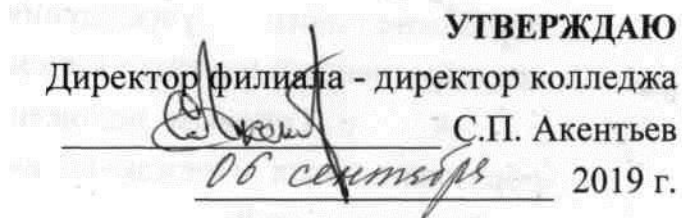 УТВЕРЖДАЮ
Директор филиала - директор колледжа
С.П. Акентьев
06 сентября 2019 г.